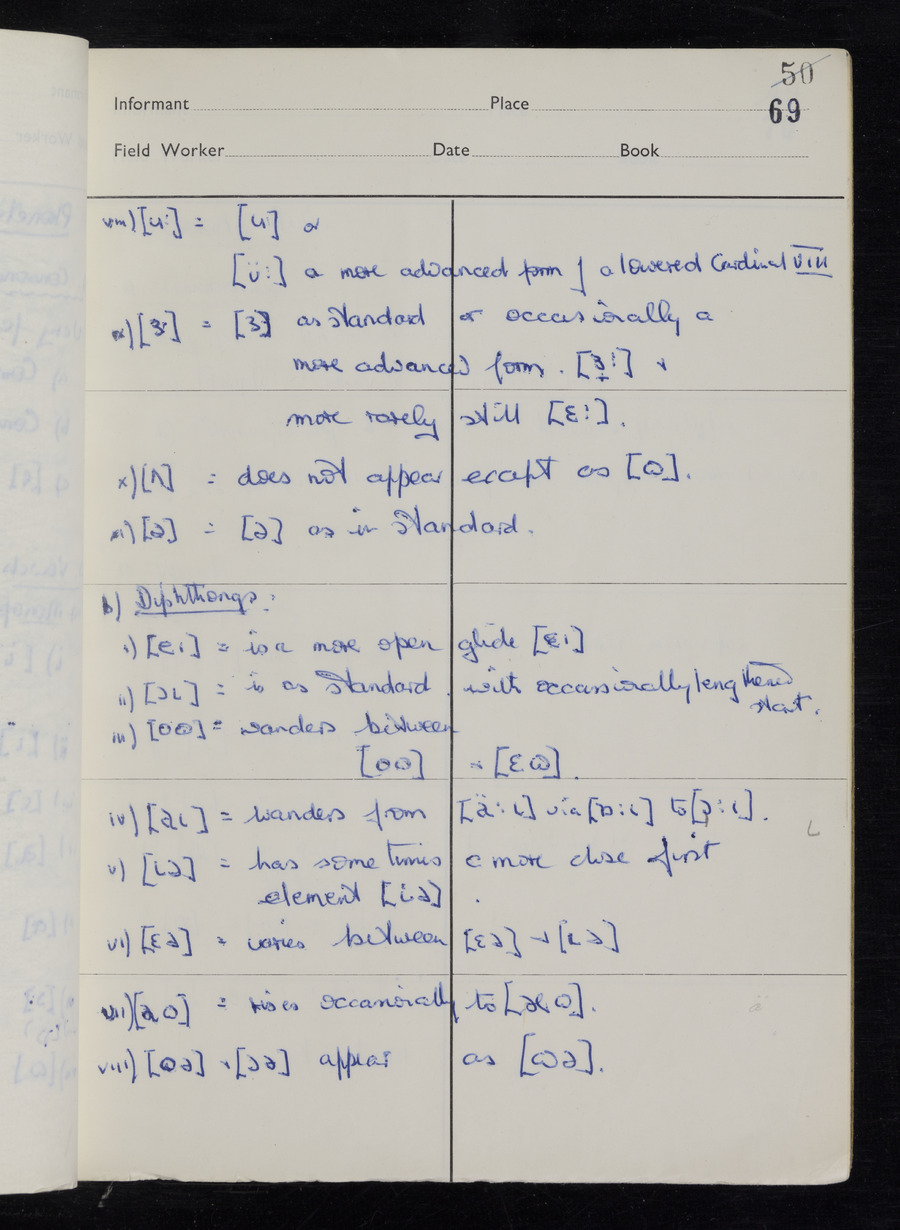 50
Informant Place 69
Field Worker Date Book
viii) [u:] = [u:] or
[ü:] a more advanced form of a lowered Cardinal VIII
ix) [ɜ:] = [ɜ:] as Standard or occasionally a
more advanced form. [ɜ̟:] +
more rarely still [ɛ:].
x) [ʌ] = does not appear except as [ɷ].
xi) [ə] = [ə] as in Standard.
b) Diphthongs:
i) [ei] = is a more open glide [ɛi]
ii) [ɔɩ] = is as Standard. with occasionally lengthened
start.
iii) [oɷ] = wanders between
[oɷ] + [ɛɷ].
iv) [aɩ] = wanders from [ä:ɩ] via [ɒ:ɩ] to [ɔ:ɩ].
v) [ɩə] = has some times a more close first
element [iə].
vi) [ɛə] = varies between [ɛə] + [ɩə]
vii) [aɷ] = rises occasionally to [æɷ].
viii) [ɷə] + [ɔə] appear as [ɷə].